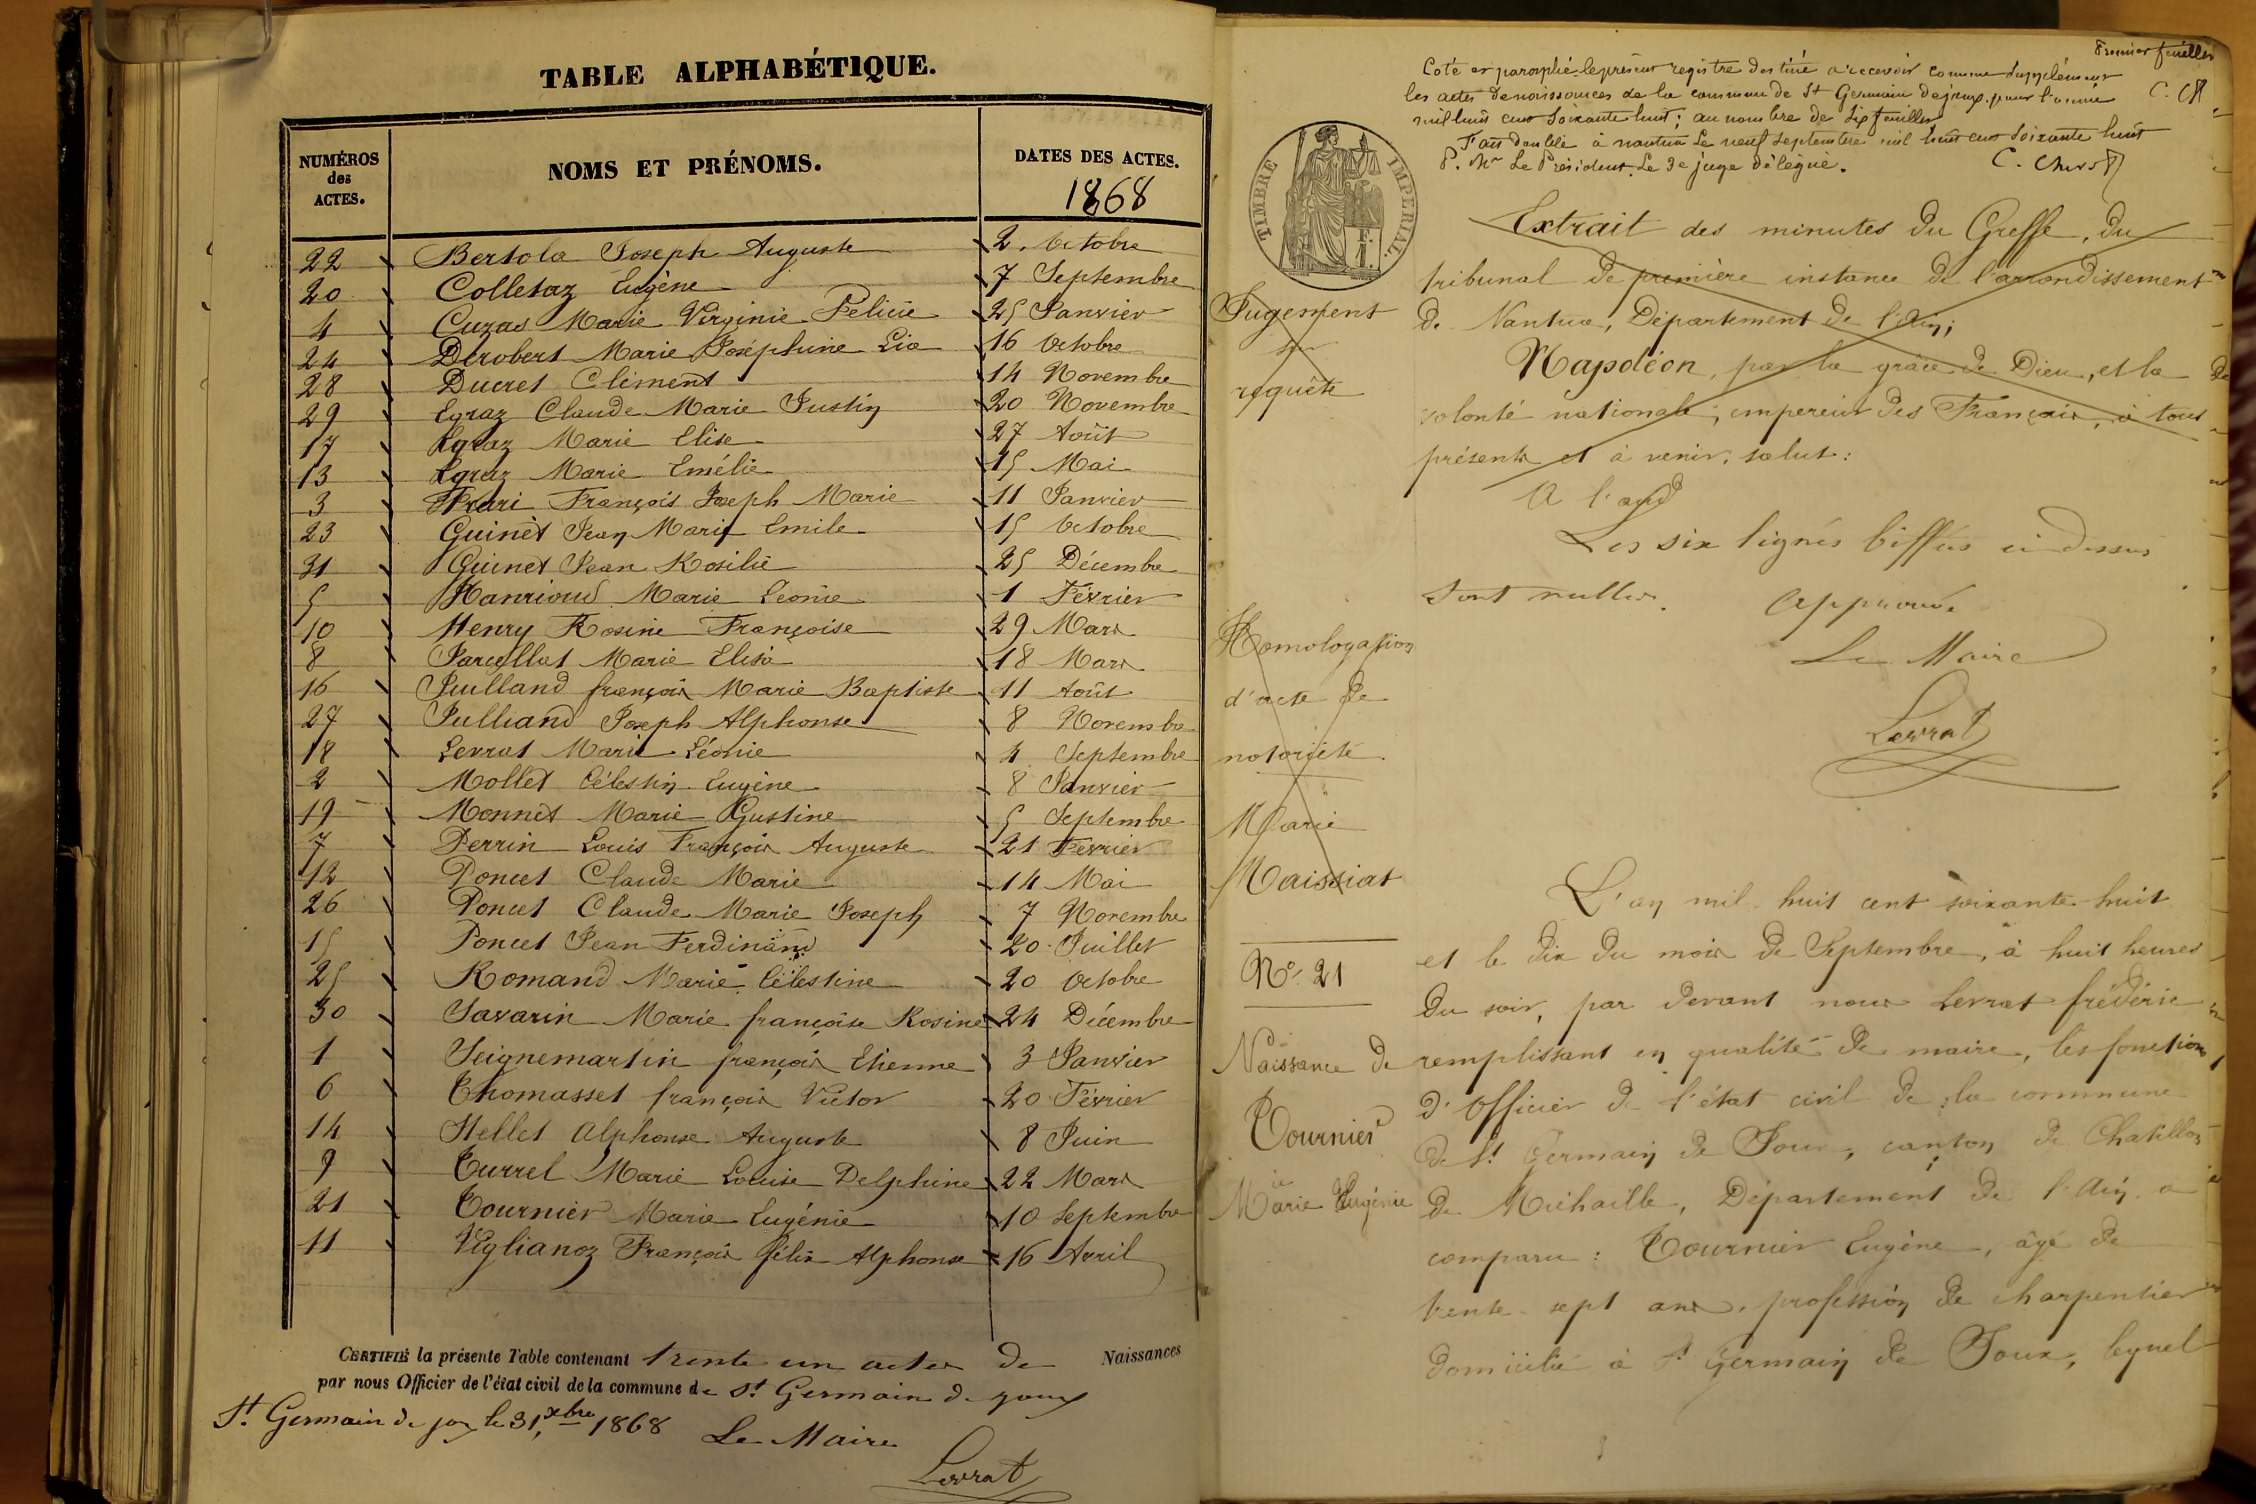 TABLE ALPHABÉTIQUE.
NUMÉROS des ACTES. NOMS ET PRÉNOMS. DATES DES ACTES.
1868
22 Bertola Joseph Auguste 2. Octobre
20 Colletaz Eugène 7 Septembre
4 Cuzas Marie Virginie Félicie 25 Janvier
24 Derobert Marie Joséphine Lia 16 Octobre
28 Ducret Clément 14 Novembre
29 Egraz Claude Marie Justin 20 Novembre
17 Egraz Marie Elise 27 Août
13 Egraz Marie Emélie 15 Mai
3 François Joseph Marie 11 Janvier
23 Guinet Jean Marie Emile 15 Octobre
31 Guinet Jean Rosilie 25 Décembre
5 Hanrioud Marie Léonie 1 Février
10 Henry Rosine Françoise 29 Mars
8 Marie Elisa 18 Mars
16 Juilland françois Marie Baptiste 11 Août
27 Julliand Joseph Alphonse 8 Novembre
18 Levrat Marie Léonie 4 Septembre
2 Mollet Célestin Eugène 8 Janvier
19 Monnet Marie Gustine 5 Septembre
7 Perrin Louis François Auguste 21 Février
12 Poncet Claude Marie 14 Mai
26 Poncet Claude Marie Joseph 7 Novembre
15 Poncet Jean Ferdinand 20 Juillet
25 Romand Marie Célestine 20 Octobre
30 Savarin Marie françoise Rosine 24 Décembre
1 Seignemartin françois Etienne 3 Janvier
6 Thomasset françois Victor 20 Février
14 Alphonse Auguste 8 Juin
9 Turrel Marie Louise Delphine 22 Mars
21 Tournier Marie Eugénie 10 Septembre
11 Viglianoz François félix Alphonse 16 Avril
CERTIFIÉ la présente Table contenant trente un actes de Naissances
par nous Officier de l'état civil de la commune de St Germain de joux
St Germain de joux le 31, xbre 1868 Le Maire
Levrat
Premier feuillet
Coté et paraphé le présent registre destiné à recevoir comme supplément
les actes de naissances de la commune de St Germain de joux pour l'année
mil huit cent soixante huit; au nombre de six feuillets
Fait double à nantua Le neuf septembre mil huit cent soixante huit
P. Mr Le Président. Le 3e juge délégué.
TIMBRE IMPÉRIAL.
1 F.
Extrait des minutes du Greffe, du
tribunal de première instance de l'arrondissement
de Nantua, Département de l'Ain;
Napoléon, par la grâce de Dieu, et la
volonté nationale; empereur des Français, à tous
présents et à venir, salut:
Jugement
sur
requête
Les six lignes biffées ci dessus
sont nulles. Approuvé
Le Maire
Levrat
Homologation
d'acte de
notoriété
Marie
Maissiat
No. 21
Naissance de
Tournier
Marie Eugénie
L'an mil huit cent soixante huit
et le dix du mois de Septembre, à huit heures
du soir, par devant nous Levrat frédéric
remplissant en qualité de maire, les fonctions
d'Officier de l'état civil de la commune
de St Germain de Joux, canton de Chatillon
de Michaille, Département de l'Ain a
comparu: Tournier Eugène, âgé de
trente-sept ans, profession de charpentier
domicilié à St Germain de Joux, lequel